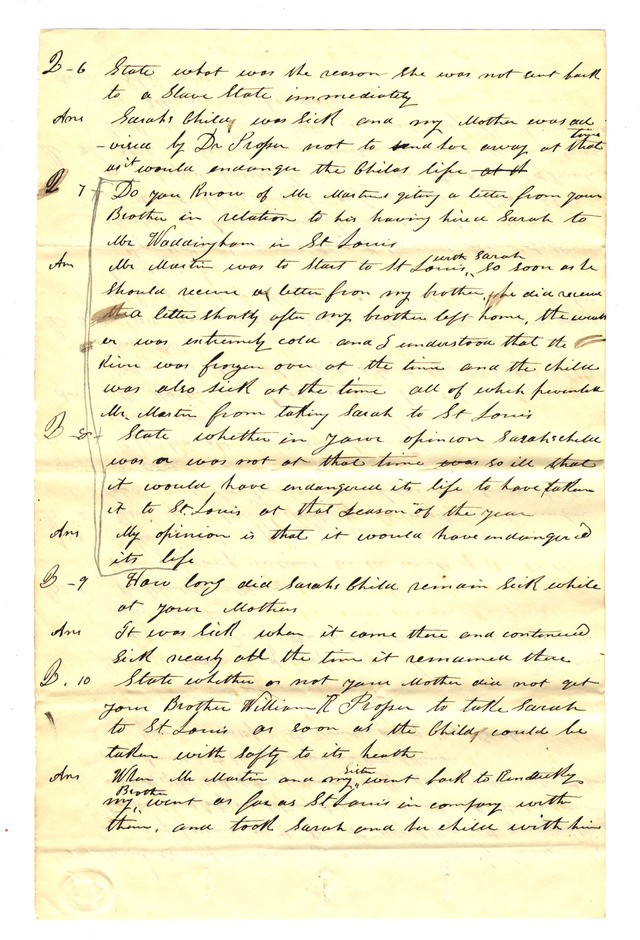 D - 6 State what was the reason she was not cent back
to a Slave State immediately
Ans Sarahs Child was Sick and my Mother was ad
-vised by Dr Proper not to send her away at that time
as it would endanger the Childs life at th
D 7 - Do you Know of Mr Martins geting a letter from your
Brother in relation to his having hired Sarah to
Mr Waddingham in St Louis
An Mr Martin was to start to St Louis, with Sarah So soon as he
should receive a letter from my brother, he did receive
the a letter shortly after my brother left home, the weath
er was extremely cold and I understood that the
River was frozen over at the time and the child
was also sick at the time all of which prevented
Mr. Martin from taking Sarah to St Louis
D - 8 - State whether in your opinion Sarahs child
was or was not at that time was so ill that
it would have endangered its life to have taken
it to St. Louis at that season of the year
Ans My opinion is that it would have endangered
its life
D - 9 How long did Sarahs Child remain Sick while
at your Mothers
Ans It was Sick when it came there and continued
Sick nearly all the time it remained there
D. 10 State whether or not your Mother did not get
your Brother William R Proper to take Sarah
to St Louis as soon as the Child could be
taken with safty to its heath
Ans When Mr Martin and my Sister went back to Kentucky
my Brother went as far as St Louis in company with
them, and took Sarah and her child with him